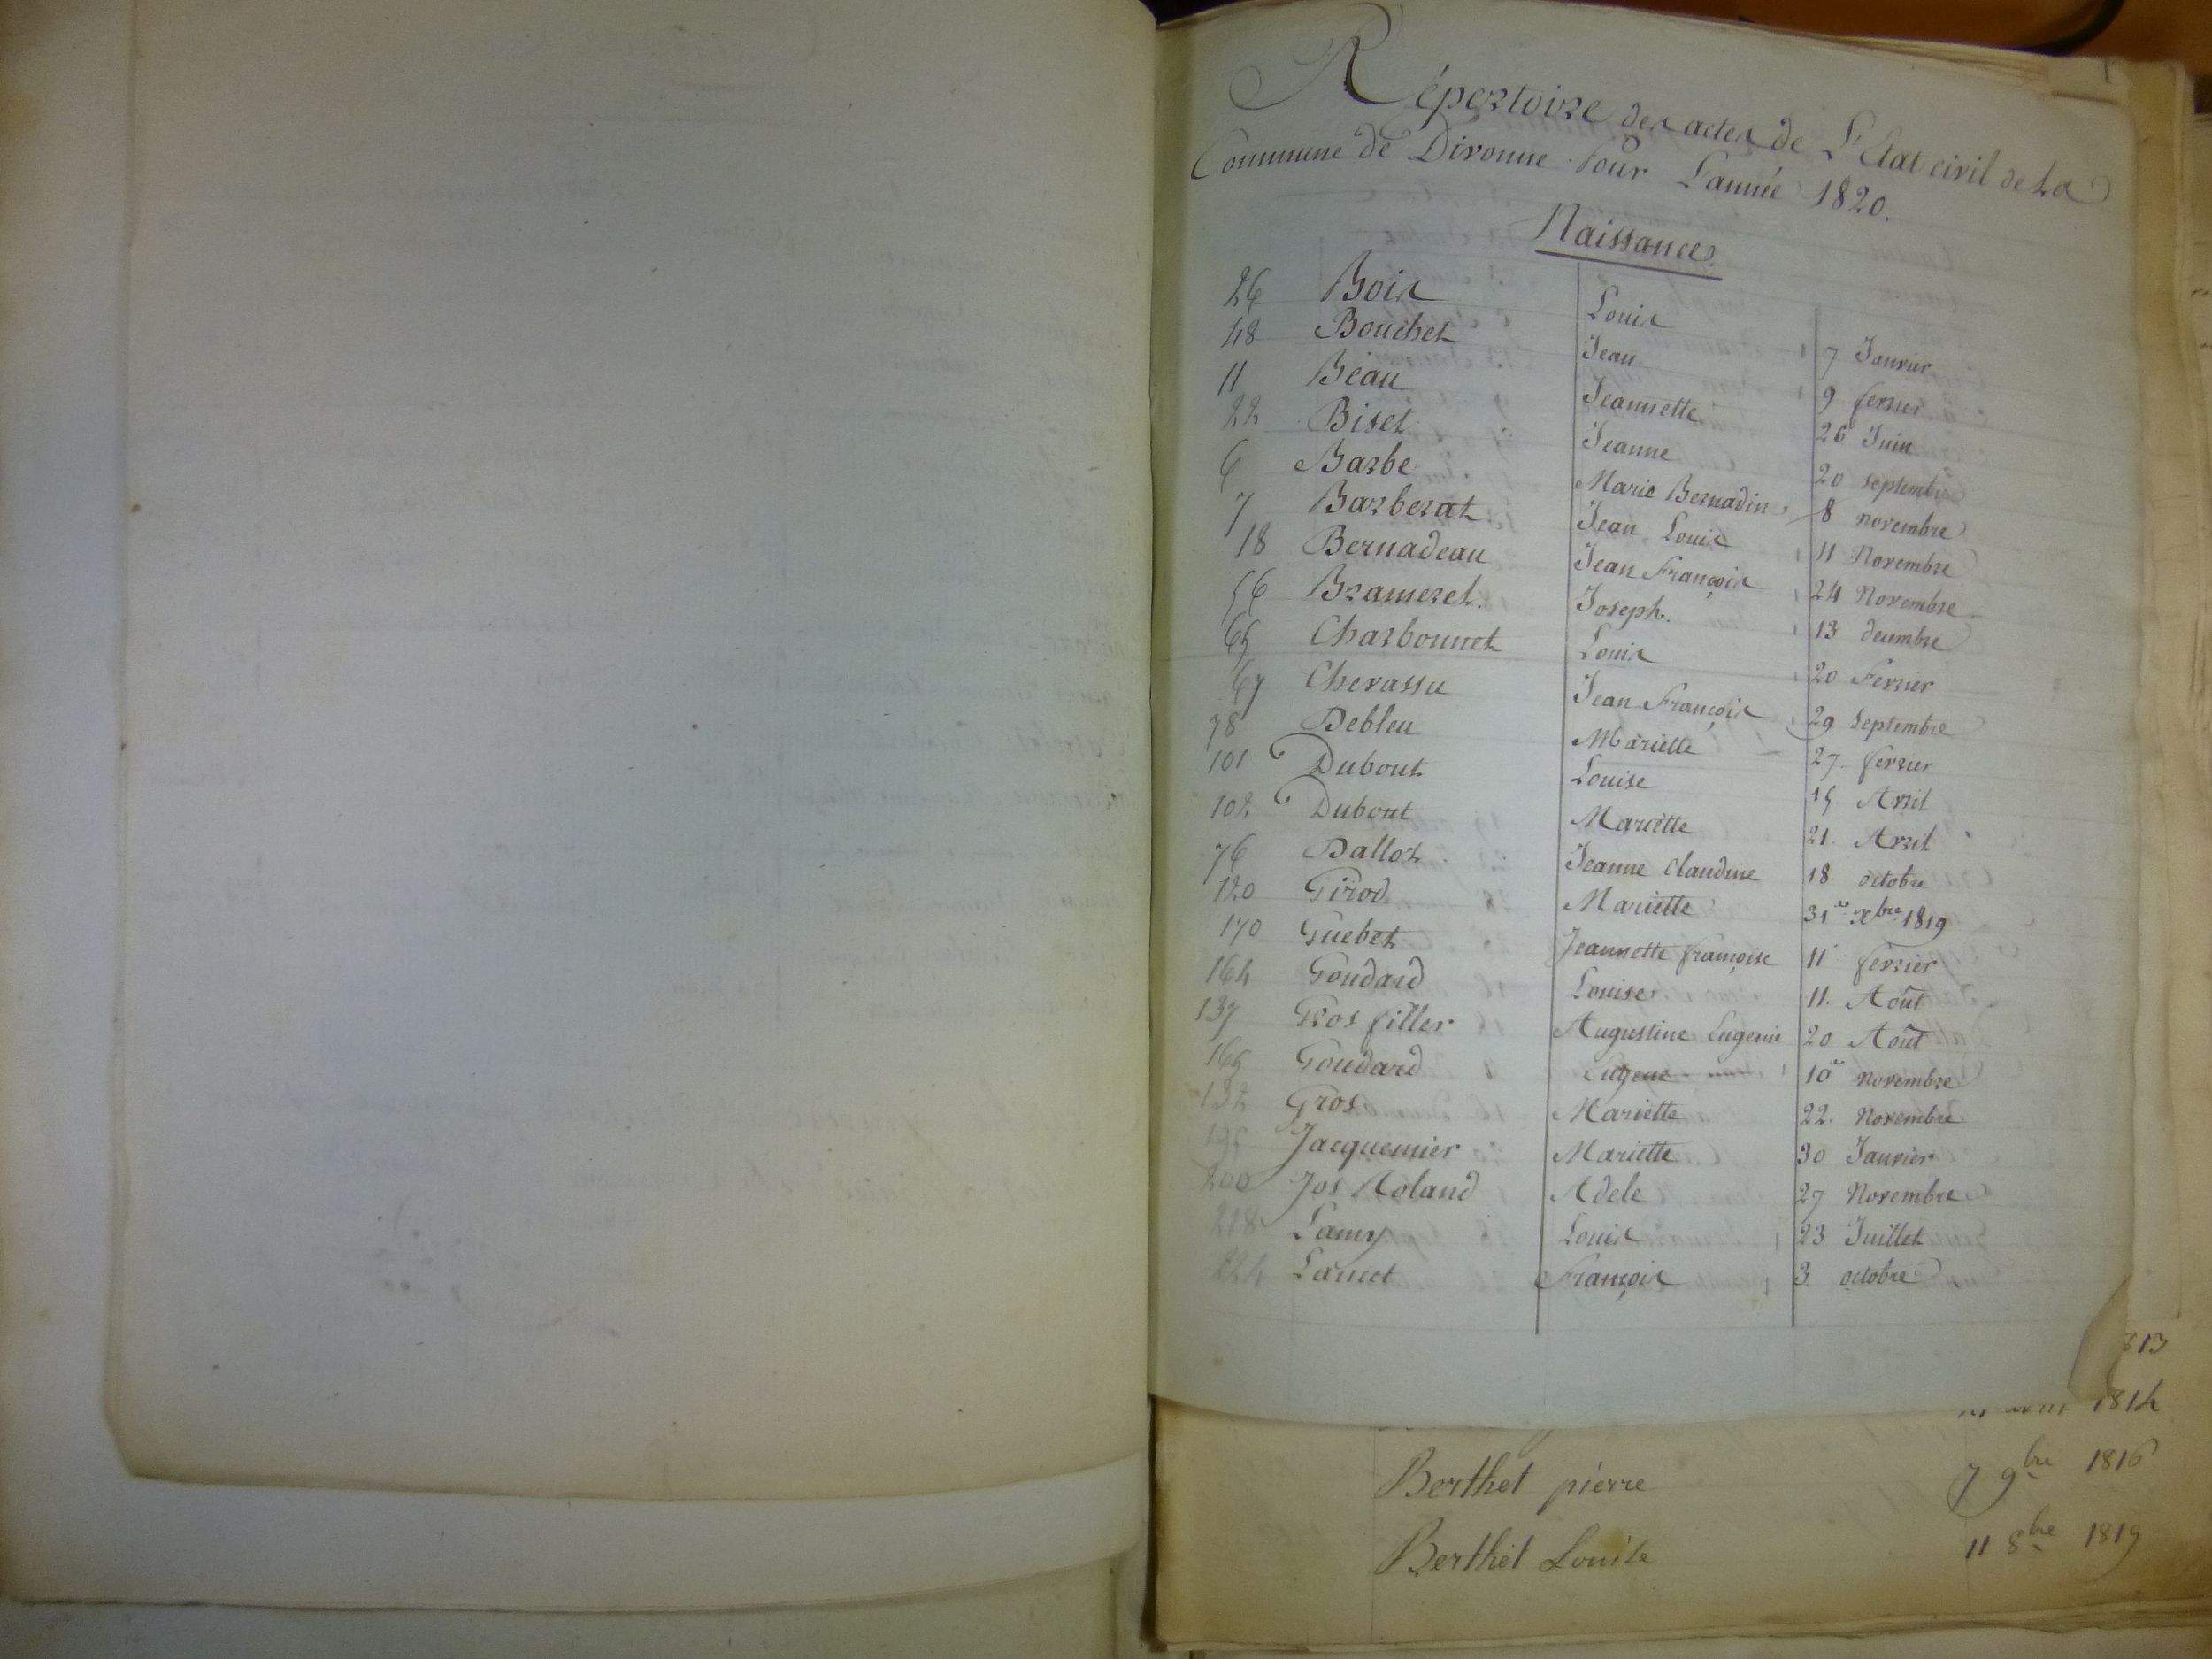 Répertoire des actes de L'Etat civil de La
Commune de Divonne Pour L'année 1820.
Naissances.
26 Bois Louis 7 Janvier
48 Bouchet Jean 9 fevrier
11 Béau Jeannette 26 Juin
22 Biset Jeanne 20 septembre
6 Barbe Marie Bernadine 8 novembre
7 Barberat Jean Louis 11 Novembre
18 Bernadeau Jean François 24 Novembre
56 Brameret. Joseph. 13 decembre
65 Charbonnet Louis 20 Fevrier
67 Chevassu Jean François 29 Septembre
78 Debleu Mariette 27. fevrier
101 Dubout Louise 15 Avril
102 Dubout Mariette 21. Avril
76 Dalloz Jeanne Claudine 18 octobre
120 Girod Mariette 31 xbre 1819
170 Guebet Jeannette françoise 11 fevrier
164 Goudard Louise 11. Août
137 Gros filler Augustine Eugenie 20 Août
165 Goudard Eugene 10 novembre
132 Gros Mariette 22. Novembre
195 Jacquemier Mariette 30 Janvier
200 Jos Roland Adele 27 Novembre
218 Lamy Louis 23 Juillet
224 Lancet François 3 octobre
813
1814
Berthet pierre 7 9bre 1816
Berthet Louise 11 8bre 1819